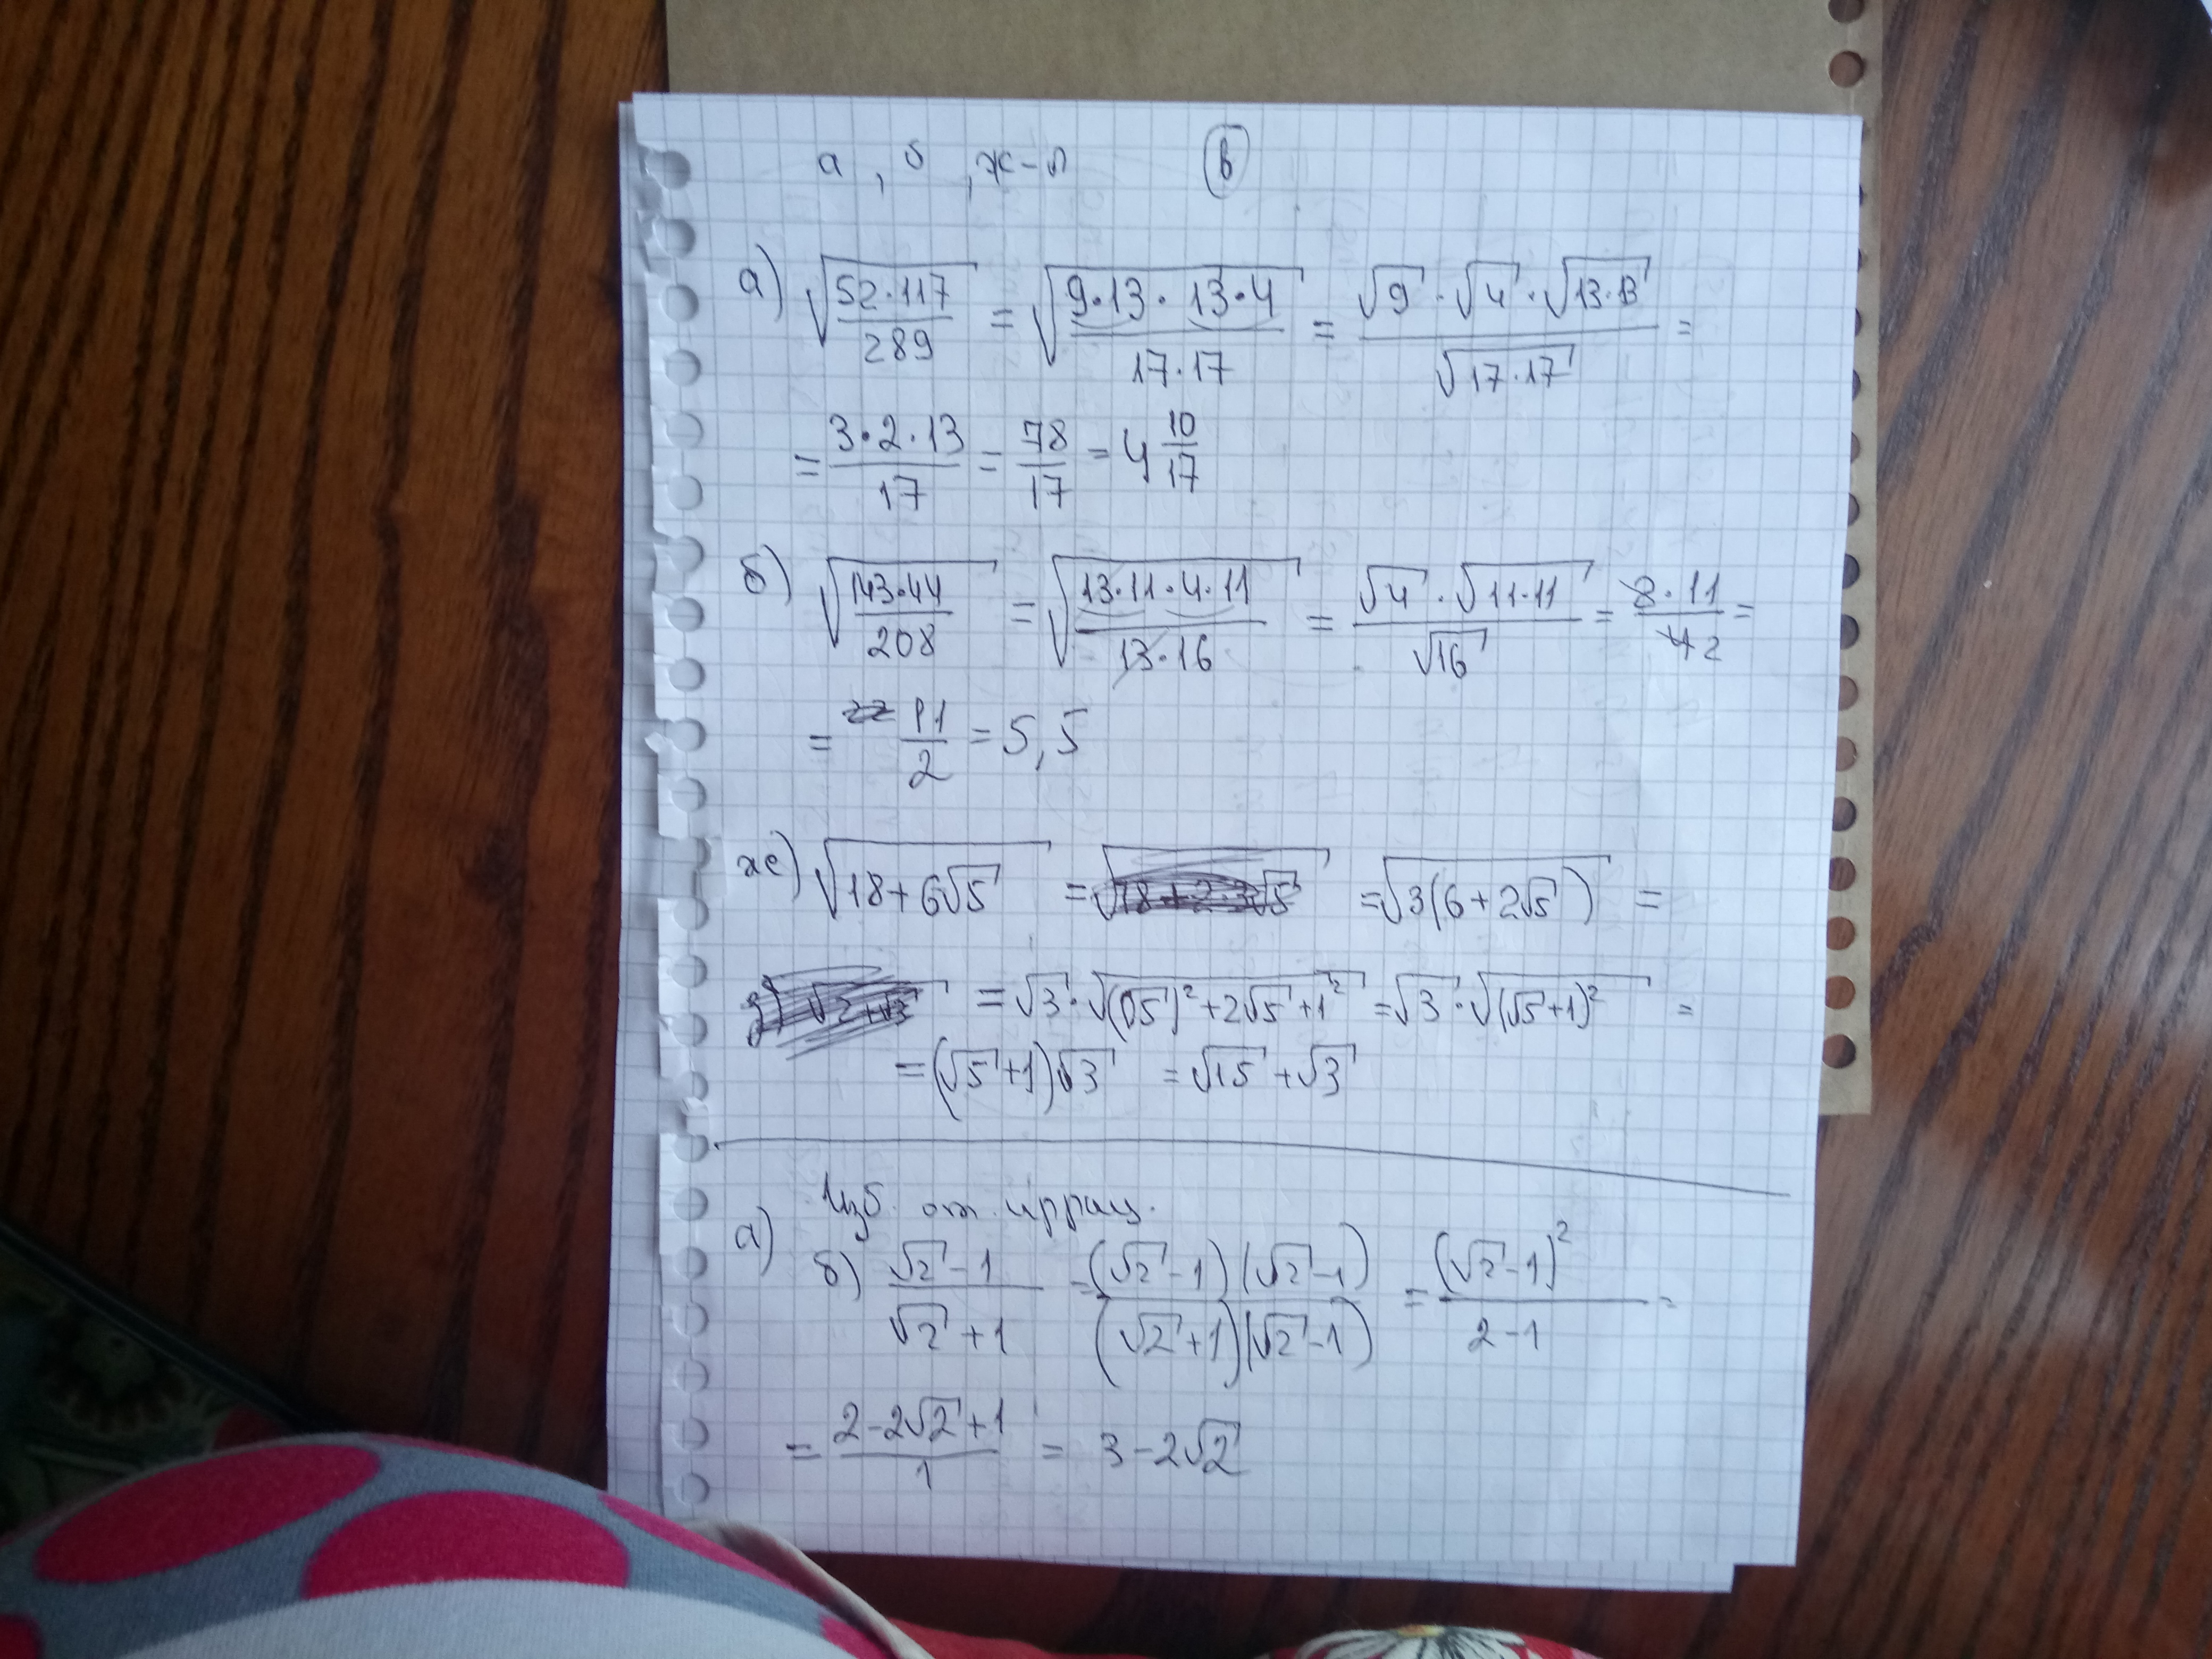 а , б , ж-л (в)
а) √(52·117/289) = √(9·13·13·4/17·17) = √9·√4·√13·13/√17·17 =
= 3·2·13/17 = 78/17 = 4 10/17
б) √(143·44/208) = √(13·11·4·11/13·16) = √4·√11·11/√16 = 2·11/4 2 =
= 11/2 = 5,5
ж) √(18+6√5) = √(18+2·3√5) = √(3(6+2√5)) =
= √3·√((√5)²+2√5+1²) = √3·√((√5+1)²) =
= (√5+1)√3 = √15+√3
Изб. от иррац.
а)
б) √2-1/√2+1 = (√2-1)(√2-1)/(√2+1)(√2-1) = (√2-1)²/2-1 =
= 2-2√2+1/1 = 3-2√2